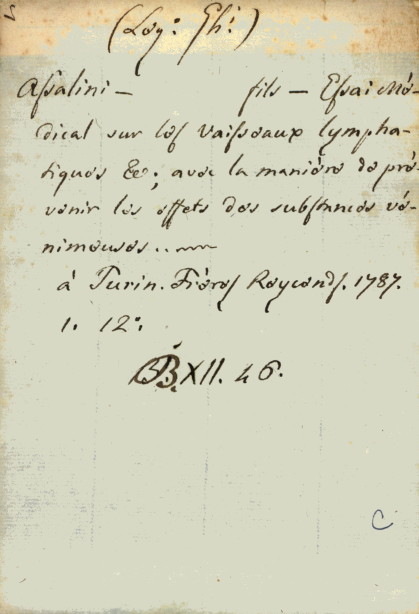 (Log: Gh:)
Assalini — fils — Essai Mé-
dical sur les Vaisseaux lympha-
tiques &c; avec la manière de pré-
venir les effets des substances vé-
nimeuses..
à Turin. Fréres Reycends. 1787.
1. 12º.
BB. XII. 46.
C